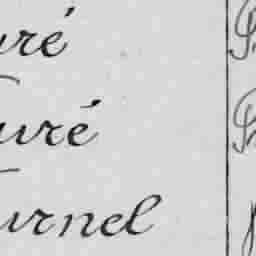 uré
uré
urnel